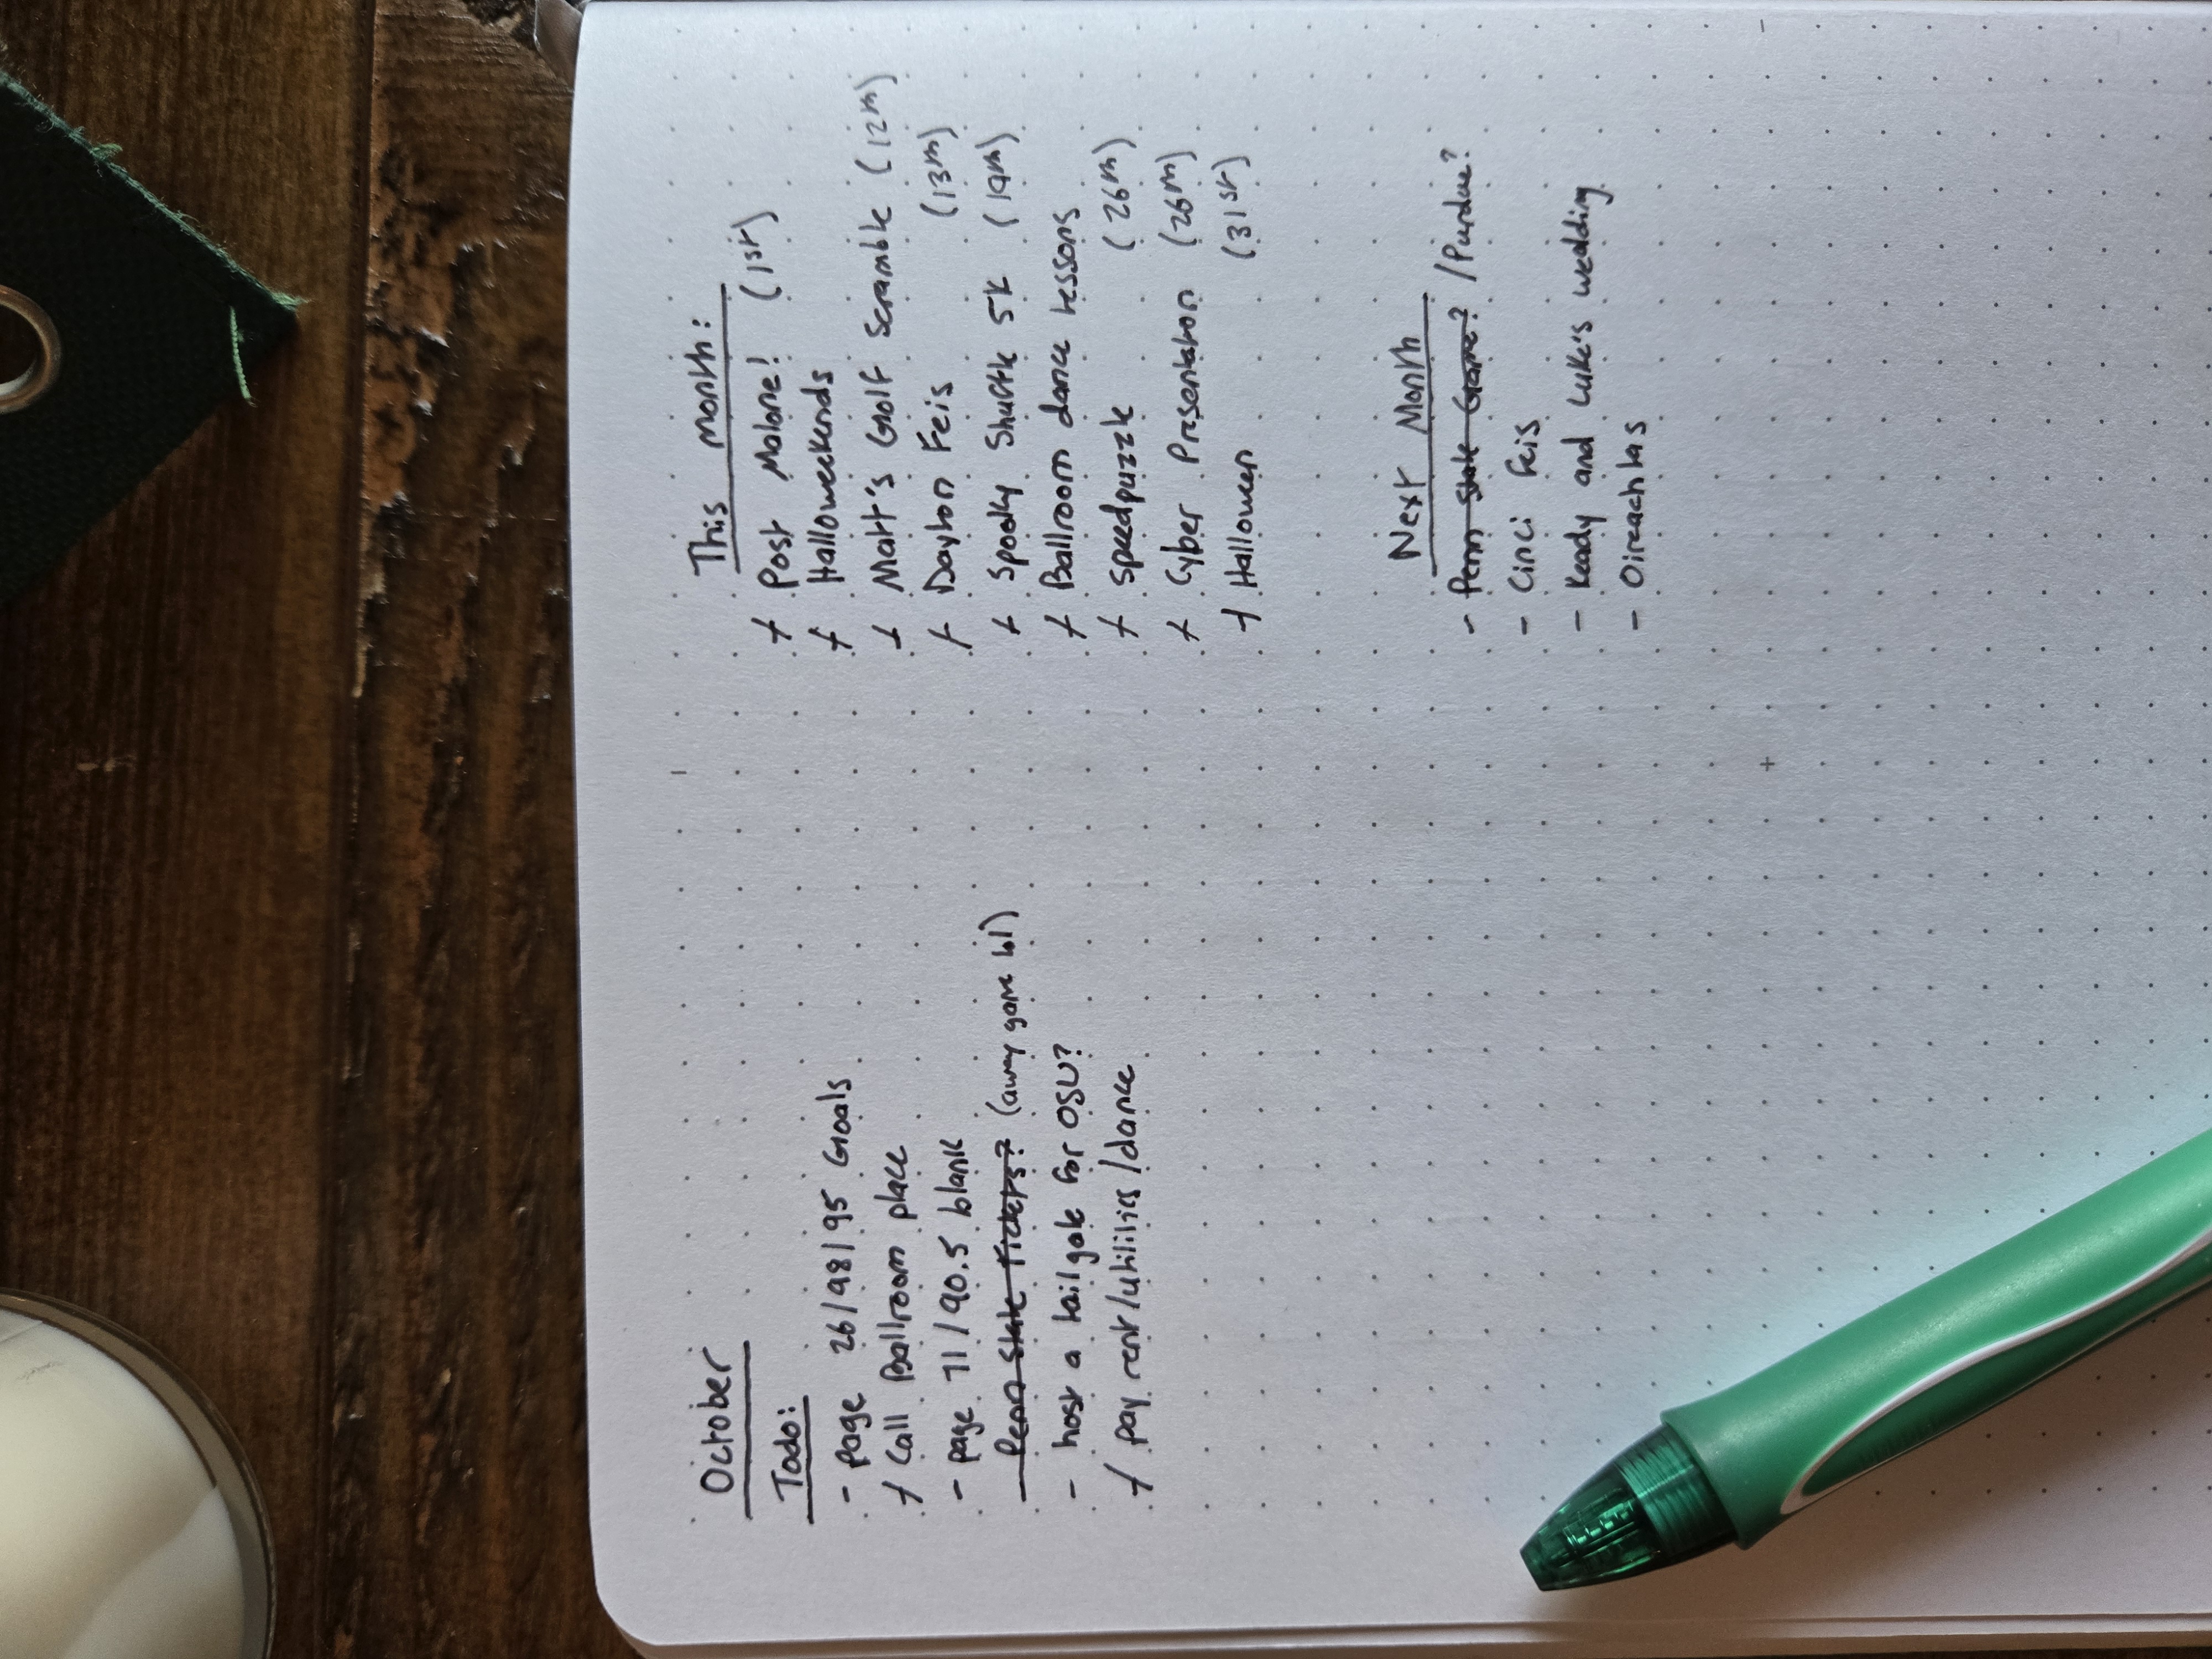 October
Todo:
- Page 26/98/95 Goals
+ Call Ballroom place
- page 71/90.5 blank
- Penn State Tickets? (away game lol)
- host a tailgate for OSU?
+ pay rent/utilities/dance
This month:
+ Post Malone! (1st)
+ Halloweekends
+ Matt's Golf Scramble (12th)
+ Dayton Feis (13th)
+ Spooky Shuffle 5k (19th)
+ Ballroom dance lessons
+ speedpuzzle (26th)
+ Cyber Presentation (26th)
+ Halloween (31st)
Next Month
- Penn State Game? /Purdue?
- Cinci Feis
- Keady and Luke's wedding
- Oireachtas